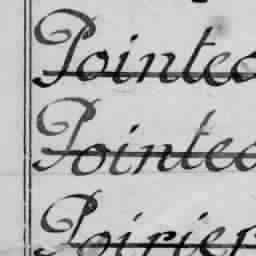 Pointec
Pointec
Poirier